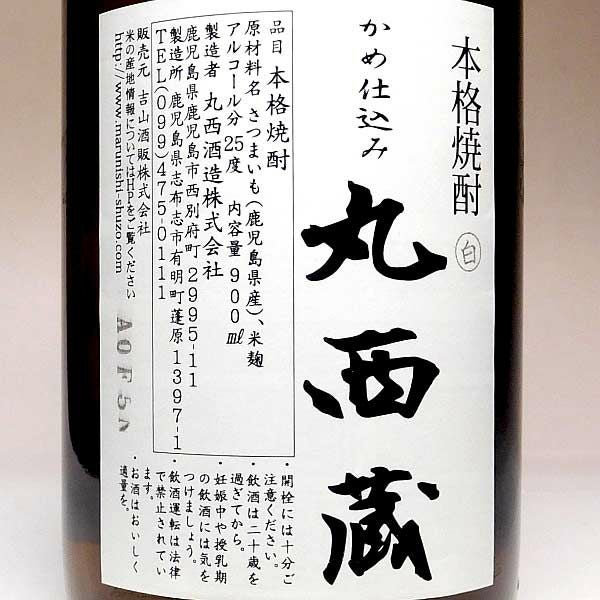 本格焼酎
白
かめ仕込み
丸西蔵
品目 本格焼酎
原材料名 さつまいも(鹿児島県産)、米麹
アルコール分 25度 内容量 900ml
製造者 丸西酒造株式会社
鹿児島県鹿児島市西別府町2995-11
製造所 鹿児島県志布志市有明町蓬原1397-1
TEL(099)475-0111
販売元 吉山酒販株式会社
米の産地情報についてはHPをご覧ください
http://www.marunishi-shuzo.com
・開栓には十分ご
注意ください。
・飲酒は二十歳を
過ぎてから。
・妊娠中や授乳期
の飲酒には気を
つけましょう。
・飲酒運転は法律
で禁止されてい
ます。
・お酒はおいしく
適量を。